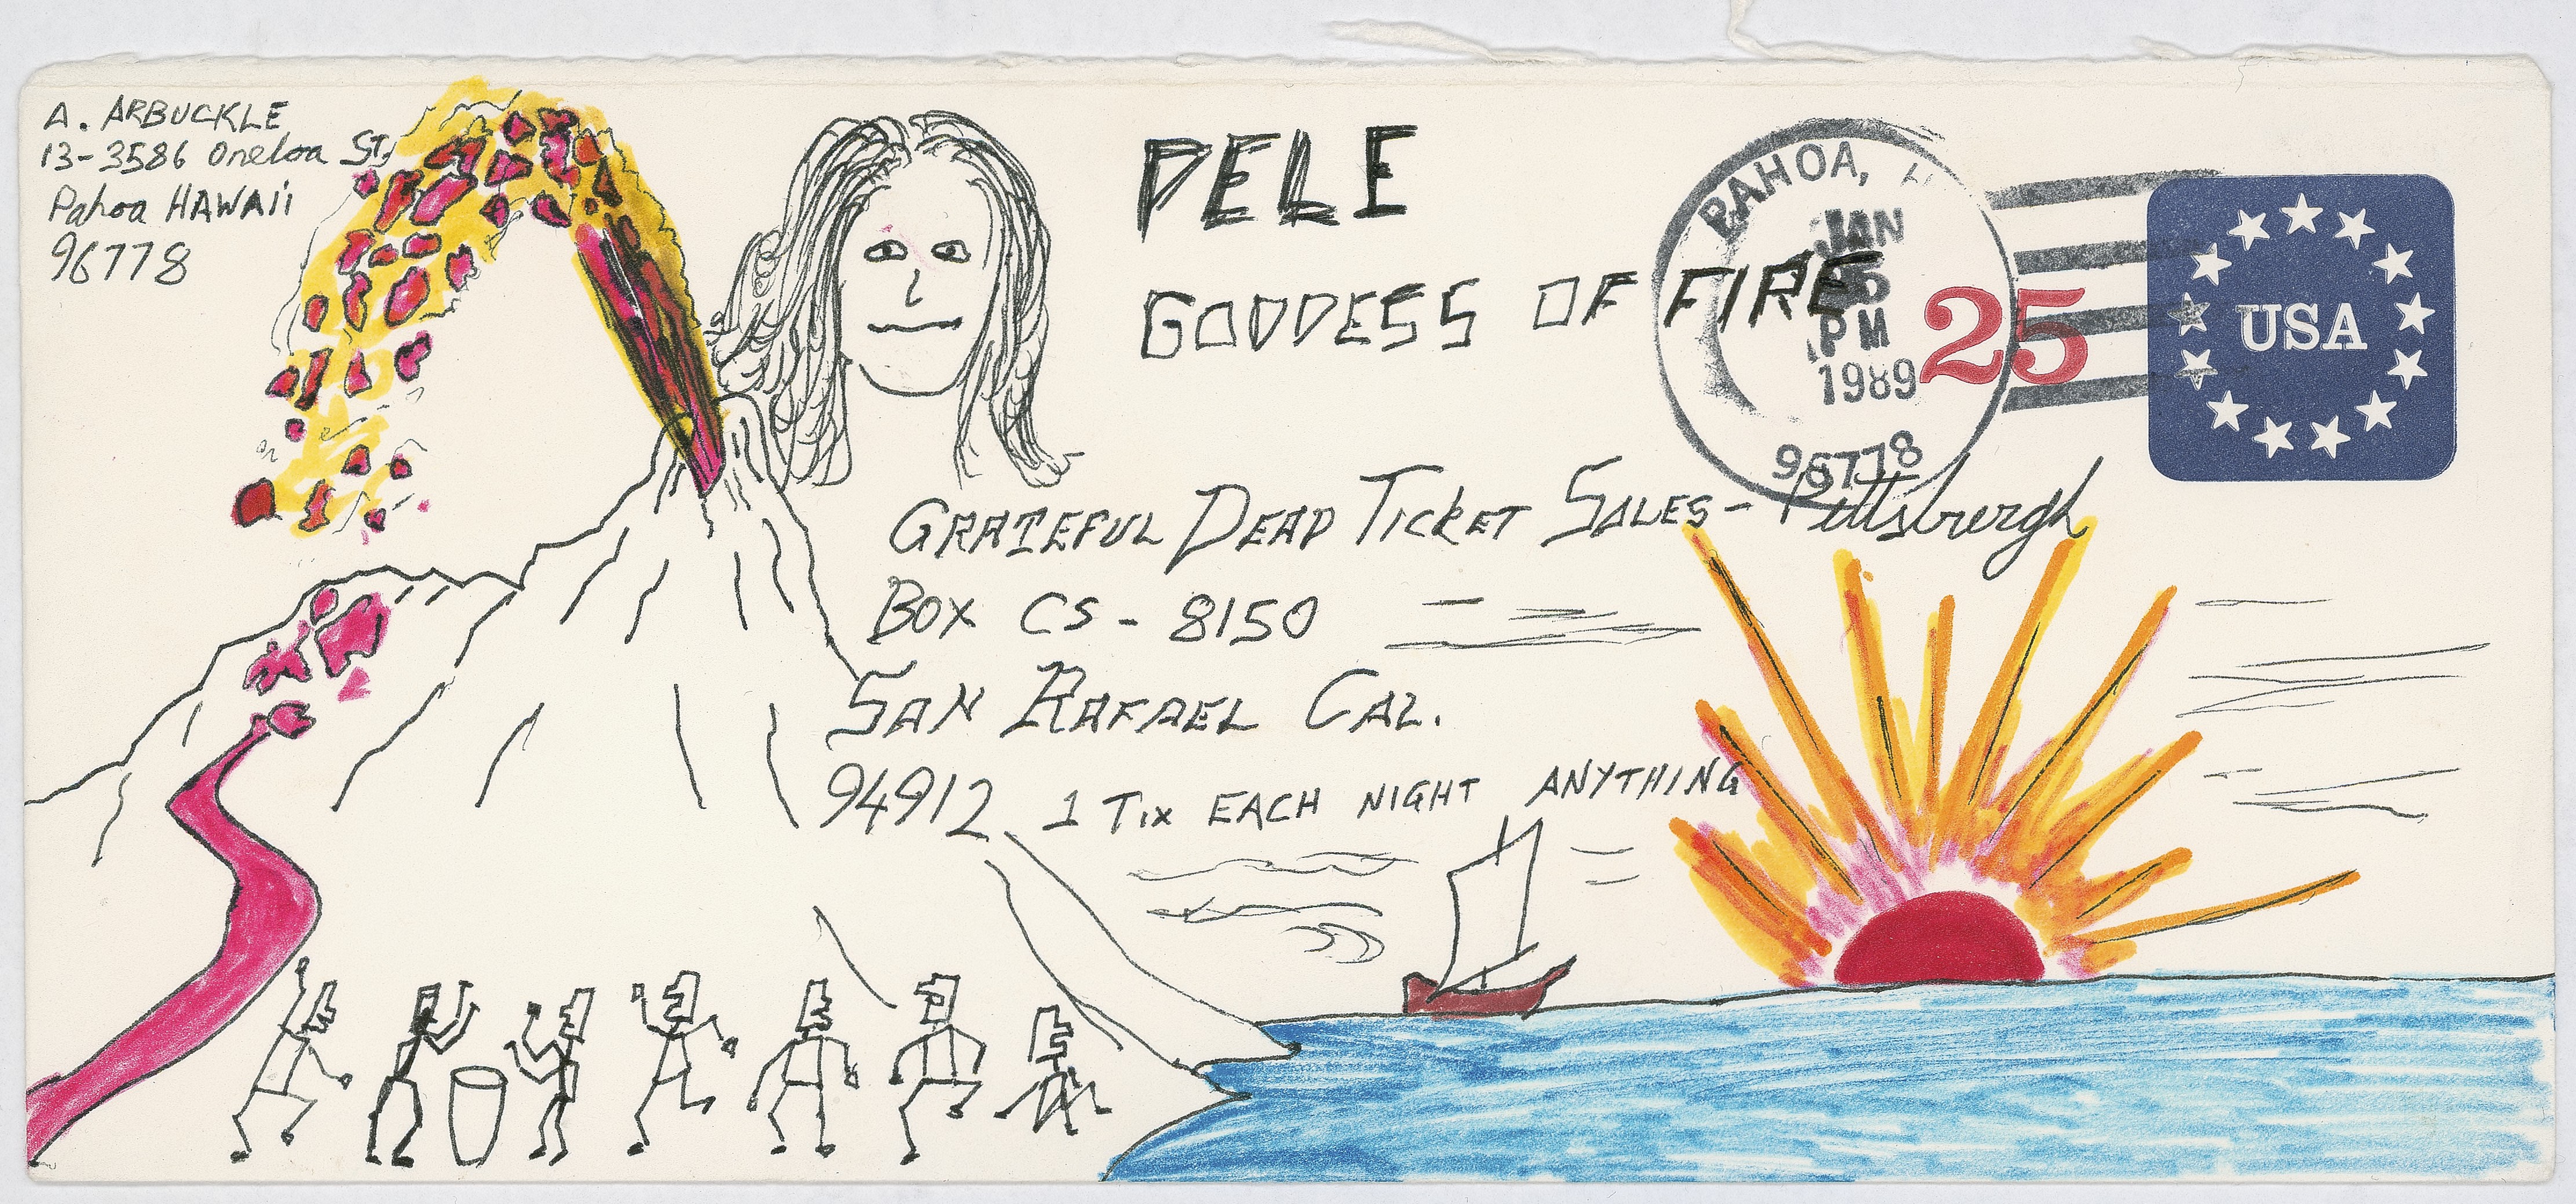 A. ARBUCKLE
13-3586 Oneloa St.
Pahoa HAWAii
96778
PELE
GODDESS OF FIRE
PAHOA, H
JAN
PM
1989
96778
25
USA
GRATEFUL DEAD TICKET SALES - Pittsburgh
BOX CS - 8150
SAN RAFAEL CAL.
94912 1 Tix EACH NIGHT ANYTHING